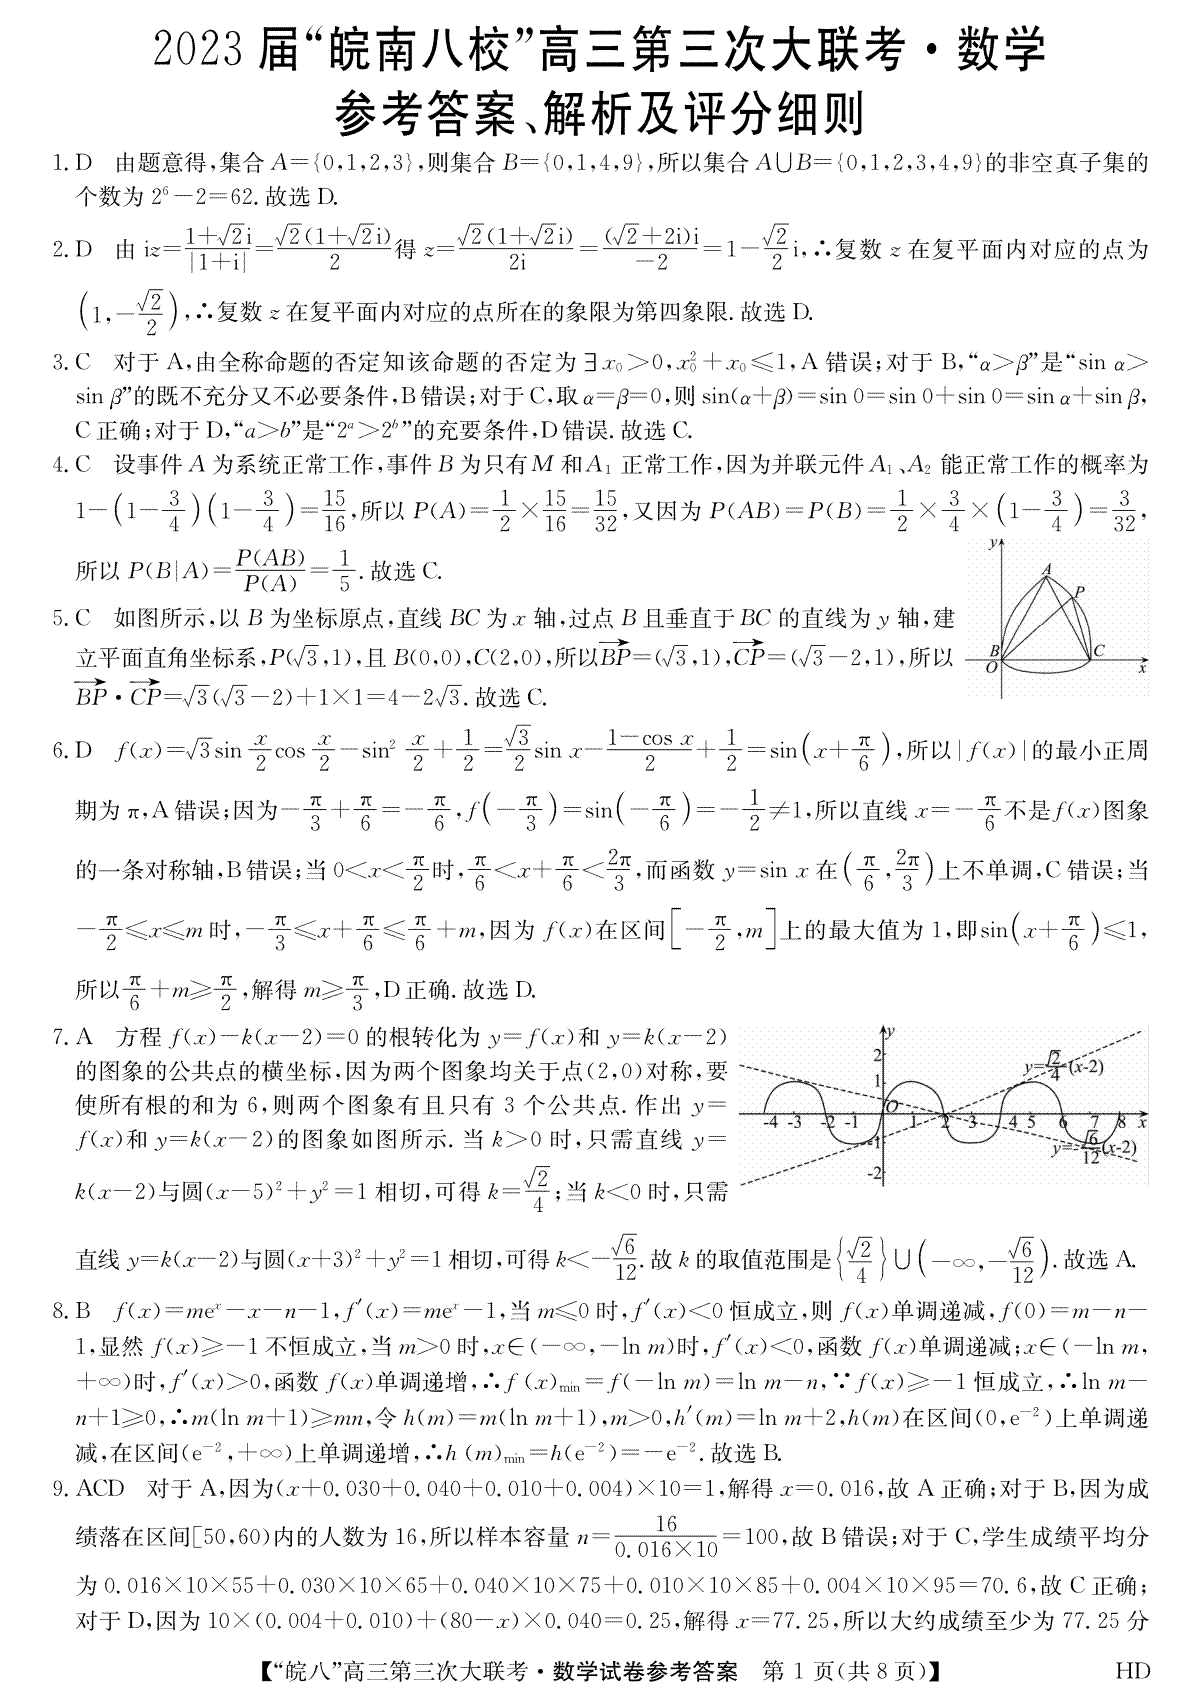 2023 届“皖南八校”高三第三次大联考·数学
参考答案、解析及评分细则
1. D 由题意得,集合 A={0,1,2,3},则集合 B={0,1,4,9},所以集合 A∪B={0,1,2,3,4,9}的非空真子集的
个数为 2⁶−2=62. 故选 D.
2. D 由 iz=(1+√2i)/|1+i|=√2(1+√2i)/2 得 z=√2(1+√2i)/2i=(√2+2i)i/−2=1−(√2/2)i,∴复数 z 在复平面内对应的点为
(1,−√2/2),∴复数 z 在复平面内对应的点所在的象限为第四象限. 故选 D.
3. C 对于 A,由全称命题的否定知该命题的否定为 ∃x₀>0,x₀²+x₀≤1,A 错误;对于 B,“α>β”是“sin α>
sin β”的既不充分又不必要条件,B 错误;对于 C,取 α=β=0,则 sin(α+β)=sin 0=sin 0+sin 0=sin α+sin β,
C 正确;对于 D,“a>b”是“2ᵃ>2ᵇ”的充要条件,D 错误. 故选 C.
4. C 设事件 A 为系统正常工作,事件 B 为只有 M 和 A₁ 正常工作,因为并联元件 A₁、A₂ 能正常工作的概率为
1−(1−3/4)(1−3/4)=15/16,所以 P(A)=1/2×15/16=15/32,又因为 P(AB)=P(B)=1/2×3/4×(1−3/4)=3/32,
所以 P(B|A)=P(AB)/P(A)=1/5. 故选 C.
y
A
P
B
O
C
x
5. C 如图所示,以 B 为坐标原点,直线 BC 为 x 轴,过点 B 且垂直于 BC 的直线为 y 轴,建
立平面直角坐标系,P(√3,1),且 B(0,0),C(2,0),所以BP→=(√3,1),CP→=(√3−2,1),所以
BP→·CP→=√3(√3−2)+1×1=4−2√3. 故选 C.
6. D f(x)=√3sin x/2 cos x/2−sin² x/2+1/2=√3/2 sin x−(1−cos x)/2+1/2=sin(x+π/6),所以|f(x)|的最小正周
期为 π,A 错误;因为−π/3+π/6=−π/6,f(−π/3)=sin(−π/6)=−1/2≠1,所以直线 x=−π/6不是f(x)图象
的一条对称轴,B 错误;当 0<x<π/2时,π/6<x+π/6<2π/3,而函数 y=sin x 在(π/6,2π/3)上不单调,C 错误;当
−π/2≤x≤m 时,−π/3≤x+π/6≤π/6+m,因为 f(x)在区间[−π/2,m]上的最大值为 1,即sin(x+π/6)≤1,
所以π/6+m≥π/2,解得 m≥π/3,D 正确. 故选 D.
7. A 方程 f(x)−k(x−2)=0 的根转化为 y=f(x)和 y=k(x−2)
的图象的公共点的横坐标,因为两个图象均关于点(2,0)对称,要
使所有根的和为 6,则两个图象有且只有 3 个公共点. 作出 y=
f(x)和 y=k(x−2)的图象如图所示. 当 k>0 时,只需直线 y=
k(x−2)与圆(x−5)²+y²=1 相切,可得 k=√2/4;当 k<0 时,只需
y
2
1
O
-4 -3 -2 -1 1 2 3 4 5 6 7 8 x
-1
-2
y=√2/4(x-2)
y=-√6/12(x-2)
直线 y=k(x−2)与圆(x+3)²+y²=1 相切,可得 k<−√6/12. 故 k 的取值范围是{√2/4}∪(−∞,−√6/12). 故选 A.
8. B f(x)=meˣ−x−n−1,f′(x)=meˣ−1,当 m≤0 时,f′(x)<0 恒成立,则 f(x)单调递减,f(0)=m−n−
1,显然 f(x)≥−1 不恒成立,当 m>0 时,x∈(−∞,−ln m)时,f′(x)<0,函数 f(x)单调递减;x∈(−ln m,
+∞)时,f′(x)>0,函数 f(x)单调递增,∴f (x)min=f(−ln m)=ln m−n,∵f(x)≥−1 恒成立,∴ln m−
n+1≥0,∴m(ln m+1)≥mn,令 h(m)=m(ln m+1),m>0,h′(m)=ln m+2,h(m)在区间(0,e⁻²)上单调递
减,在区间(e⁻²,+∞)上单调递增,∴h (m)min=h(e⁻²)=−e⁻². 故选 B.
9. ACD 对于 A,因为(x+0.030+0.040+0.010+0.004)×10=1,解得 x=0.016,故 A 正确;对于 B,因为成
绩落在区间[50,60)内的人数为 16,所以样本容量 n=16/(0.016×10)=100,故 B 错误;对于 C,学生成绩平均分
为 0.016×10×55+0.030×10×65+0.040×10×75+0.010×10×85+0.004×10×95=70.6,故 C 正确;
对于 D,因为 10×(0.004+0.010)+(80−x)×0.040=0.25,解得 x=77.25,所以大约成绩至少为 77.25 分
【“皖八”高三第三次大联考·数学试卷参考答案 第 1 页(共 8 页)】 HD